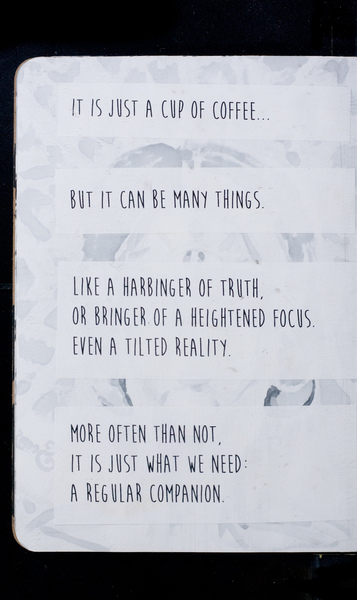 IT IS JUST A CUP OF COFFEE...
BUT IT CAN BE MANY THINGS.
LIKE A HARBINGER OF TRUTH,
OR BRINGER OF A HEIGHTENED FOCUS.
EVEN A TILTED REALITY.
MORE OFTEN THAN NOT,
IT IS JUST WHAT WE NEED:
A REGULAR COMPANION.